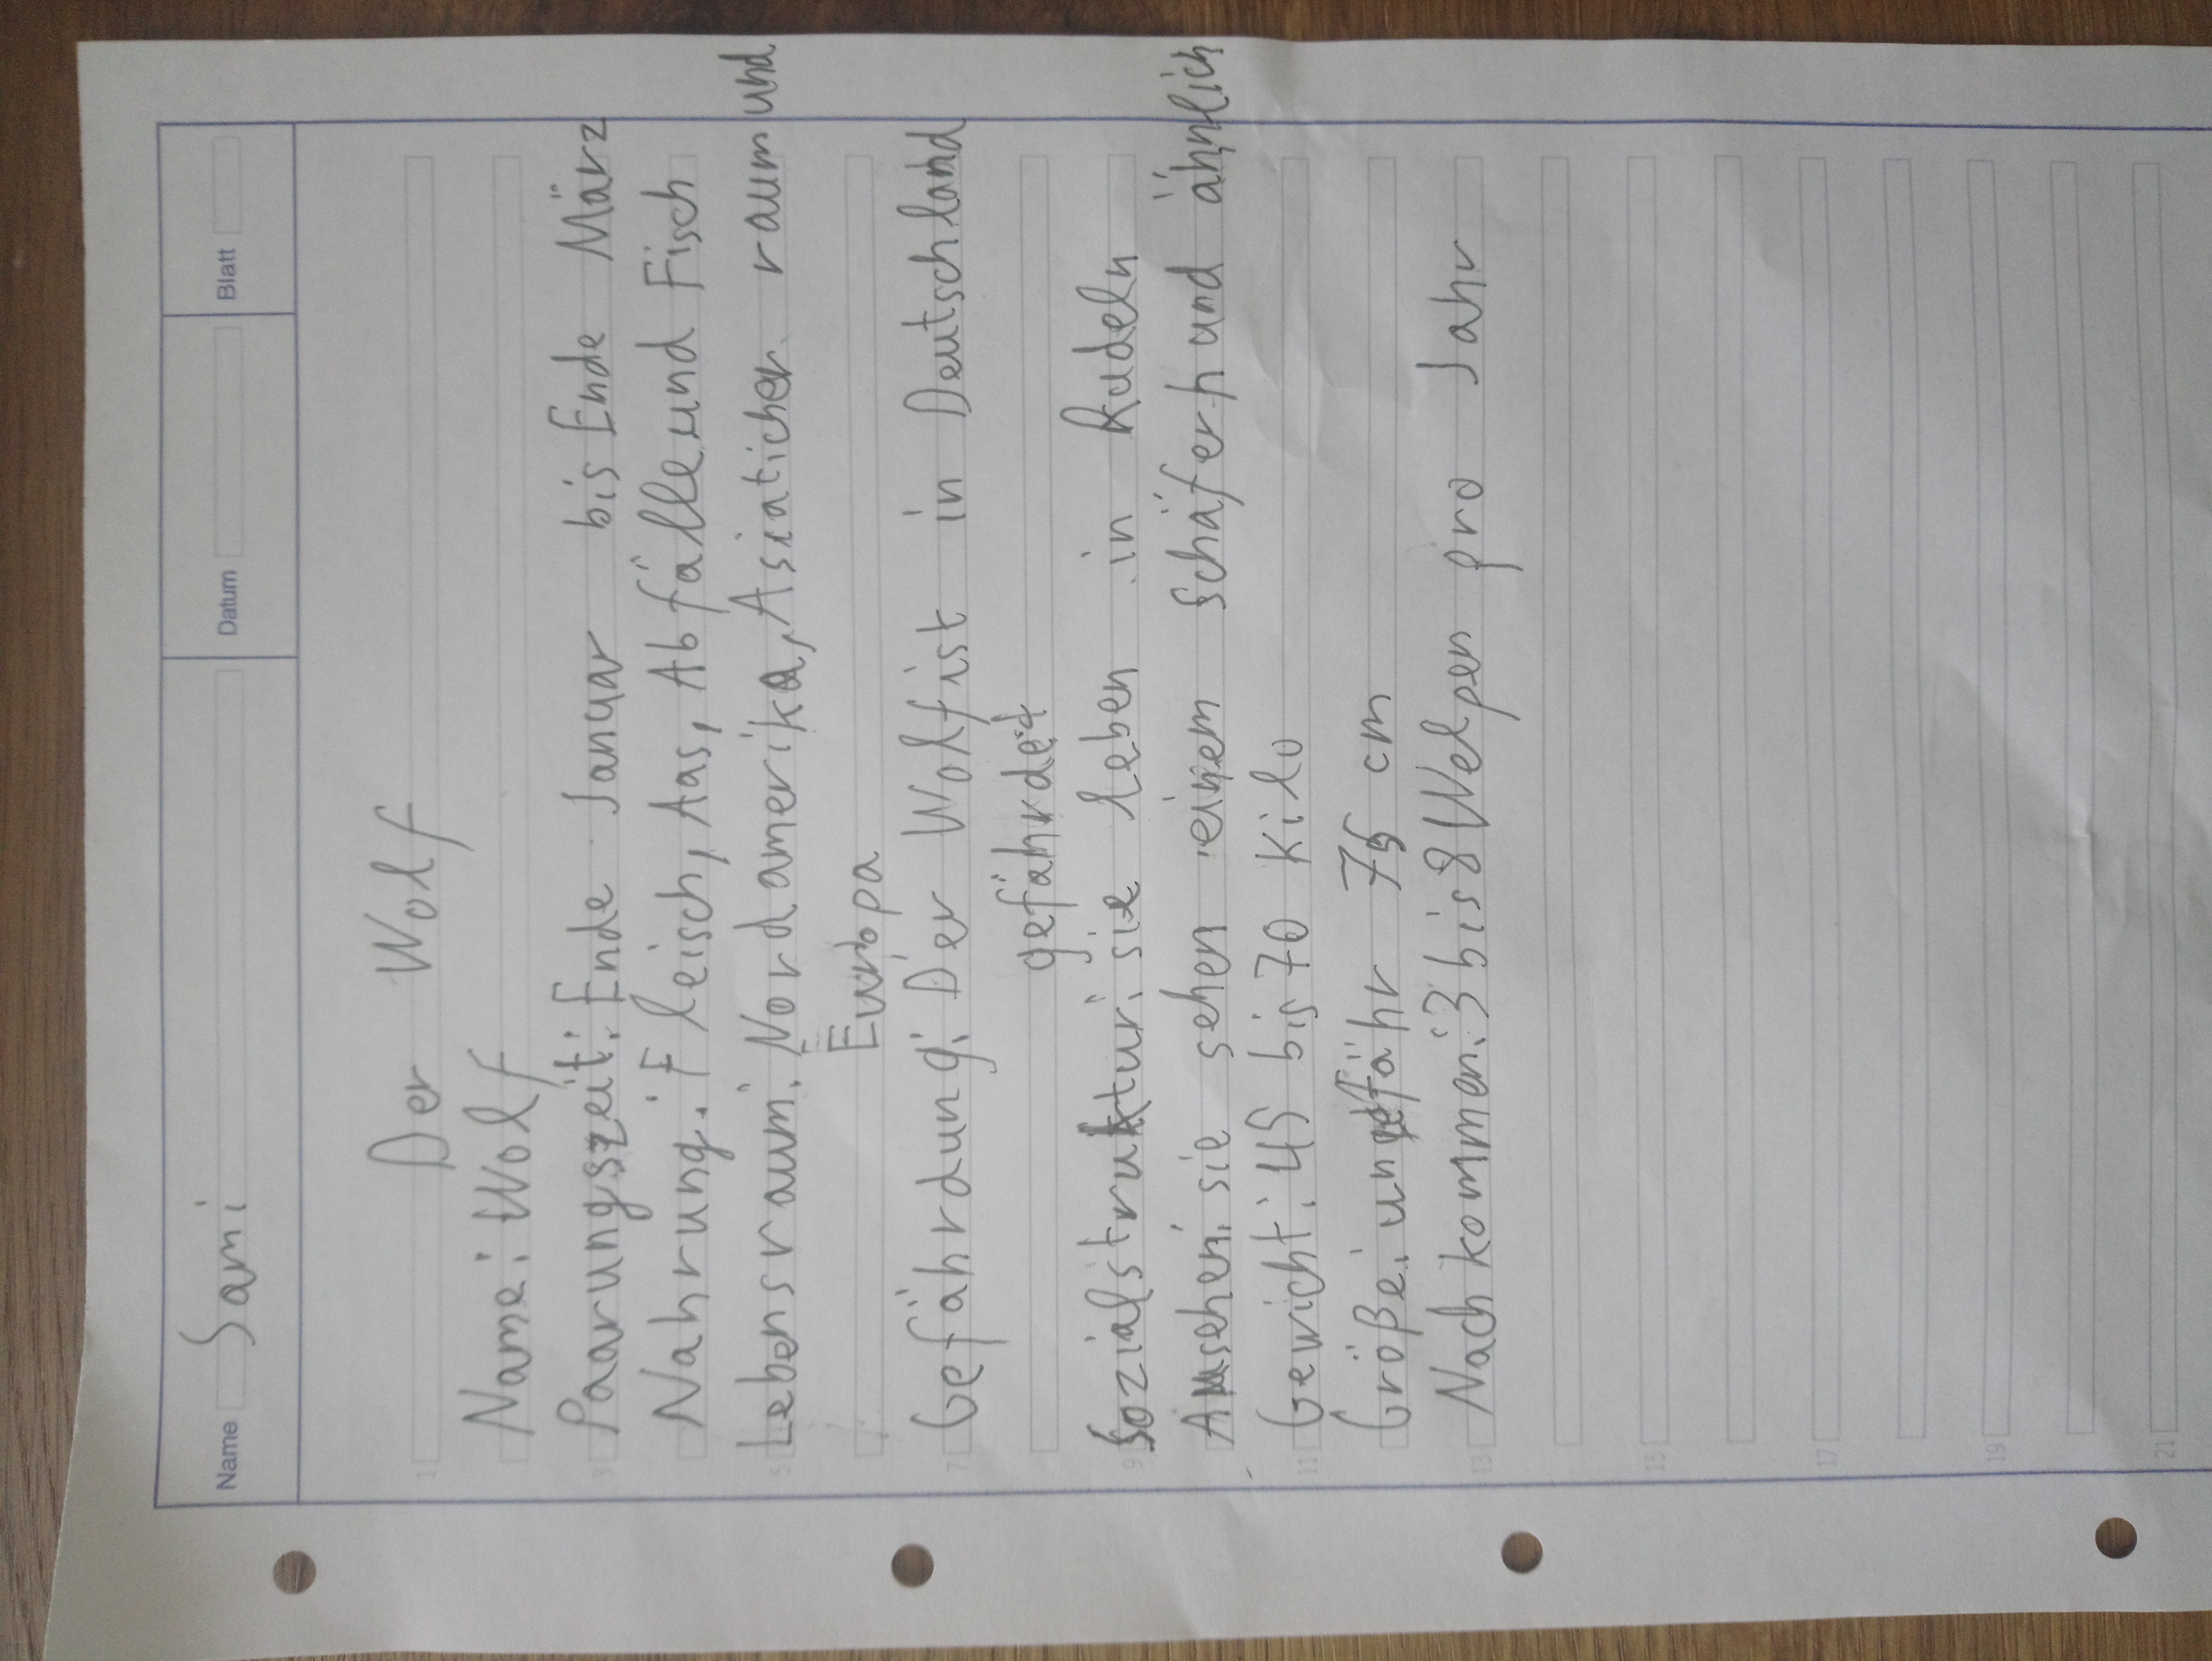 Name Sami Datum Blatt
1 Der Wolf
Name: Wolf
3 Paarungszeit: Ende Januar bis Ende März
Nahrung: Fleisch, Aas, Abfälle und Fisch
5 Lebensraum: Nordamerika, Asiaticher raum und
Europa
7 Gefährdung: Der Wolf ist in Deutschland
gefährdet
9 Sozialstruktur: sie leben in Rudeln
Ausehen: sie sehen einem schäferhund ähnlich
11 Gewicht: 45 bis 70 kilo
Größe: ungefähr 75 cm
13 Nachkommen: 3 bis 8 Welpen pro Jahr
15
17
19
21